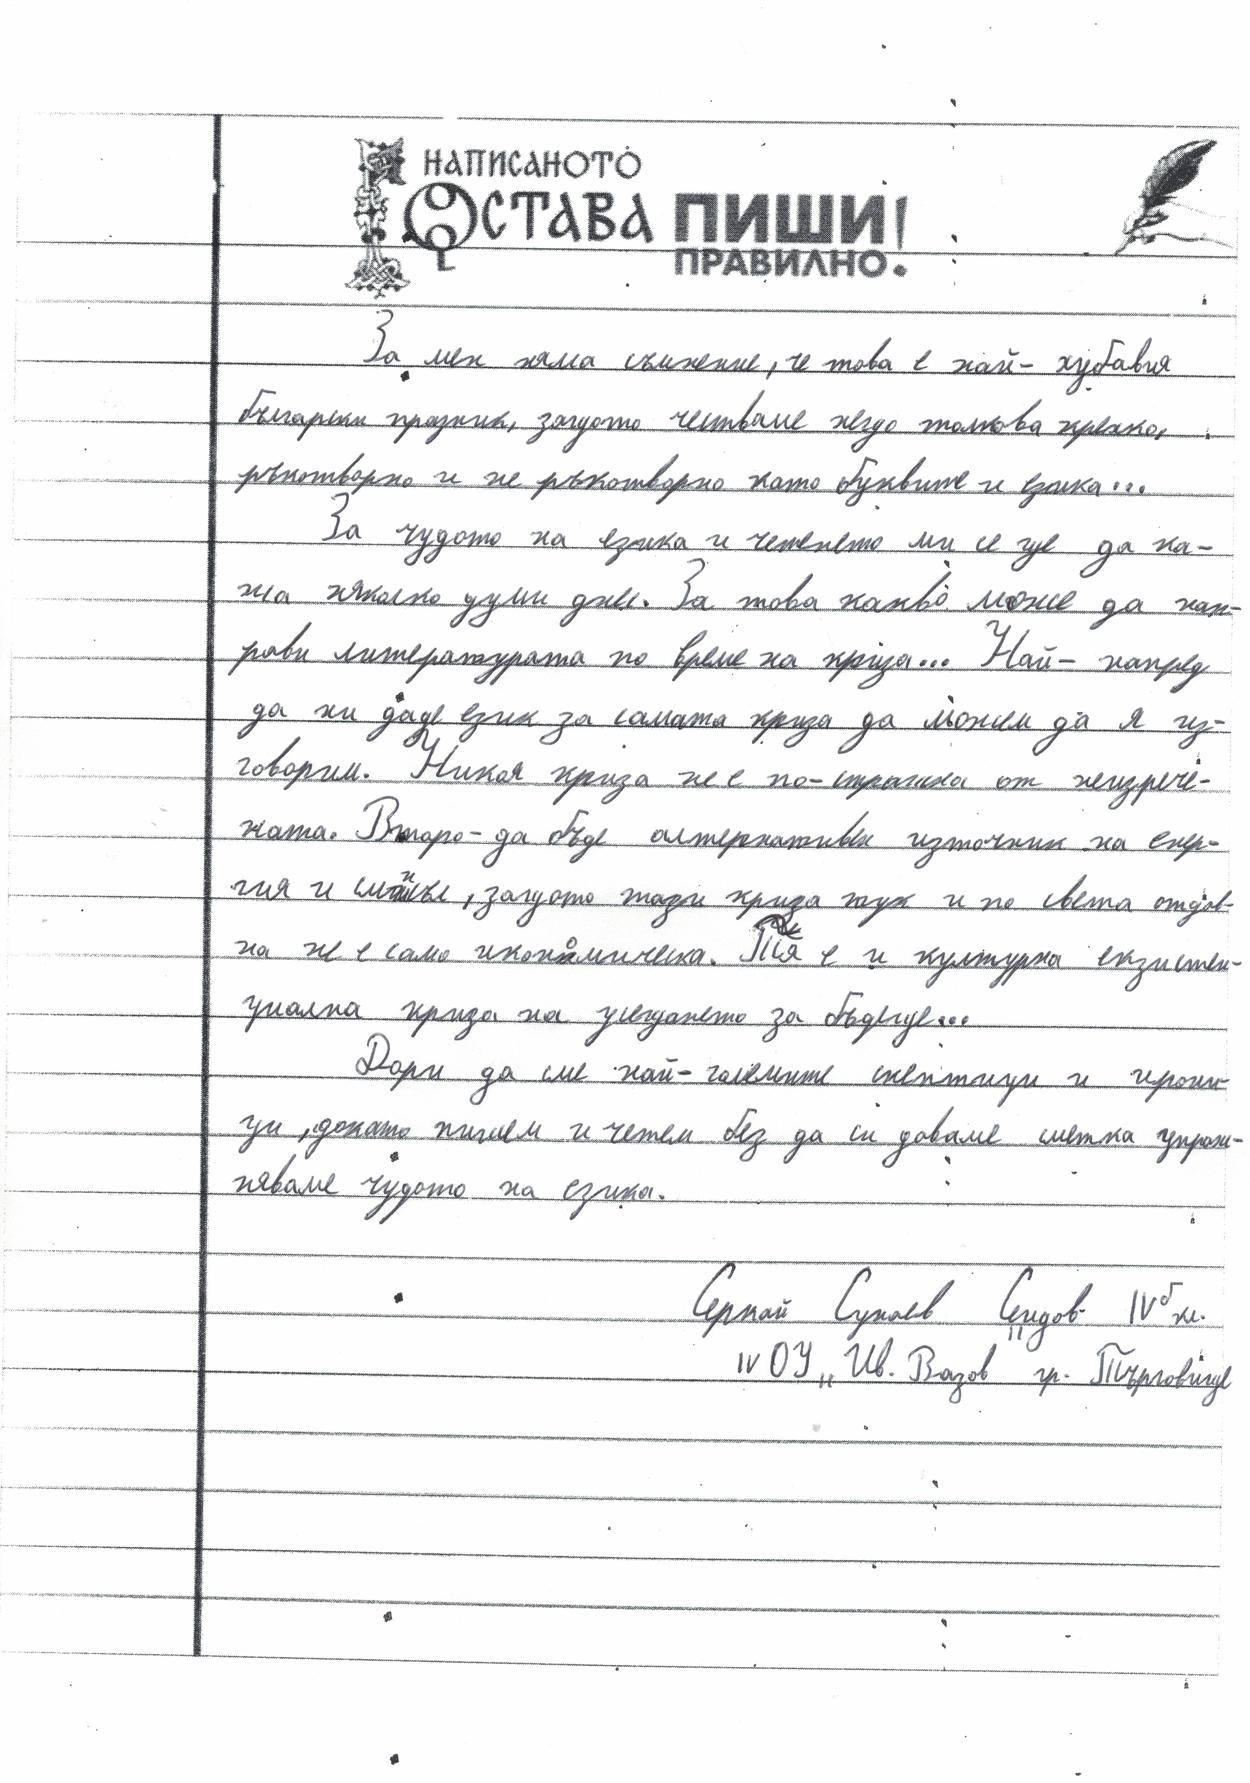 НАПИСАНОТО
ОСТАВА ПИШИ!
ПРАВИЛНО.
За мен няма съмнение, че това е най- хубавия
български празник, защото честваме нещо толкова крехко,
ръкотворно и не ръкотворно като буквите и езика...
За чудото на езика и четенето ми се ще да ка-
жа няколко думи днес. За това какво може да нап-
рави литературата по време на криза... Най- напред
да ни даде език за самата криза да можем да я из-
говорим. Никоя криза не е по-страшна от неизрече-
ната. Второ- да бъде алтернативен източник на енер-
гия и смисъл, защото тази криза тук и по света отдав-
на не е само икономическа. Тя е и културна екзистен-
циална криза на усещането за бъдеще...
Дори да сме най- големите скептици и ирони-
ци, докато пишем и четем без да си даваме сметка упраж-
няваме чудото на езика.
Сеидов IVб кл.
IV ОУ „Ив. Вазов" гр. Търговище